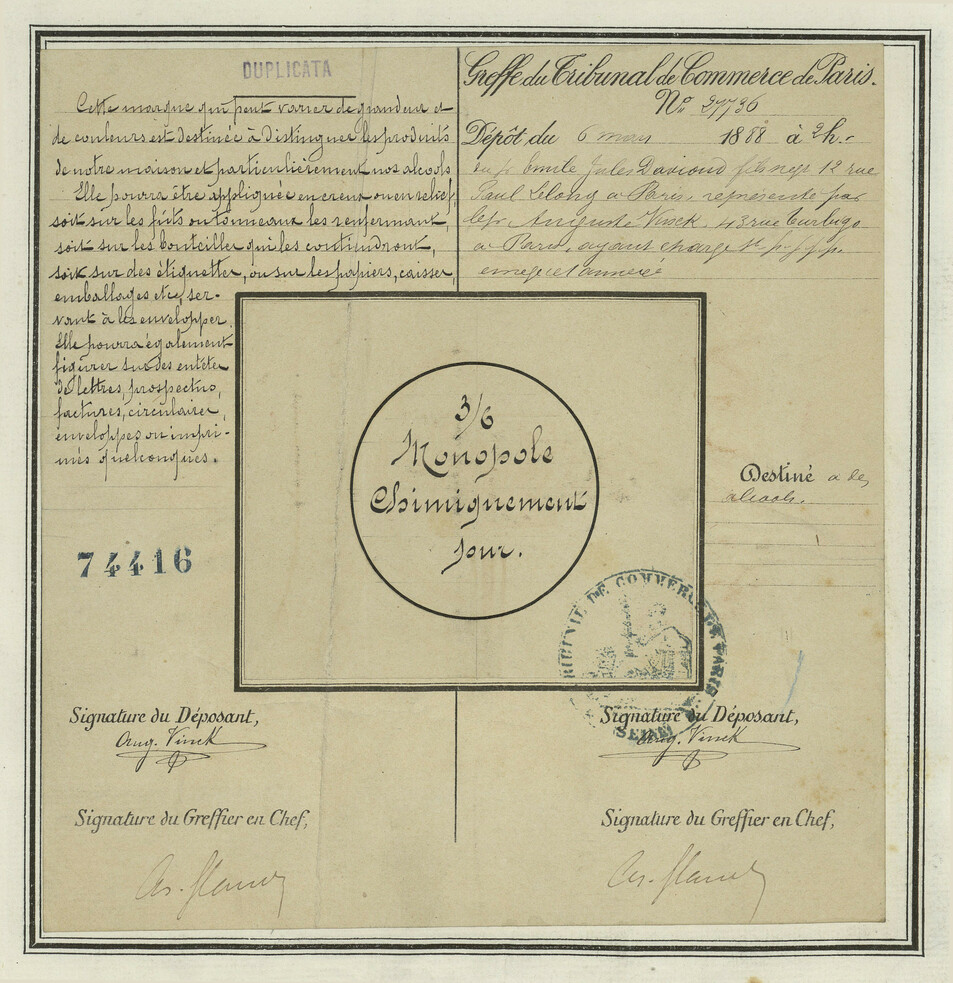 DUPLICATA
Cette marque qui peut varier de grandeur et
de couleurs est destinée à distinguer les produits
de notre maison et particulièrement nos alcools
Elle pourra être appliquée en creux ou en relief,
soit sur les fûts ou tonneaux les renfermant,
soit sur les bouteilles qui les contiendront,
soit sur des étiquettes, ou sur les papiers, caisses
emballages etc, ser-
vant à les envelopper.
Elle pourra également
figurer sur des entêtes
de lettres, prospectus,
factures, circulaires,
enveloppes ou impri-
més quelconques.
74416
Greffe du Tribunal de Commerce de Paris.
No. 27736
Dépôt du 6 mars 1888 à 2h.
Emile Jules 12 rue
Paul Lelong a Paris, représenté par
le sr Auguste Vinck, 43 rue Turbigo
a Paris, ayant charge
enregé et annexé
3/6
Monopole
Chimiquement
pur.
Destiné a des
alcools.
TRIBUNAL DE COMMERCE DE PARIS
SEINE
Signature du Déposant,
Aug. Vinck
Signature du Greffier en Chef,
Signature du Déposant,
Aug. Vinck
Signature du Greffier en Chef,